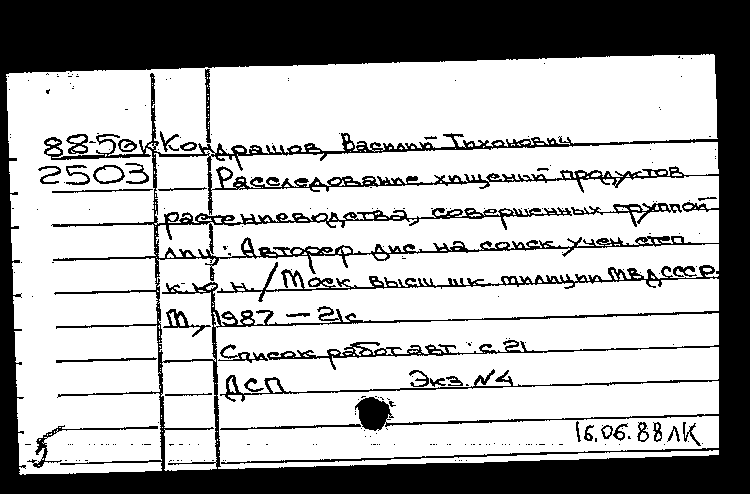 88-50к Кондрашов, Василий Тихонович
2503 Расследование хищений продуктов
растениеводства, совершенных группой
лиц: Автореф. дис. на соиск. учен. степ.
к.ю.н. / Моск. высш. шк. милиции МВД СССР.
М., 1987. – 21 с.
Список работ авт.: с. 21
ДСП Экз. №4
16.06.88 ЛК
5